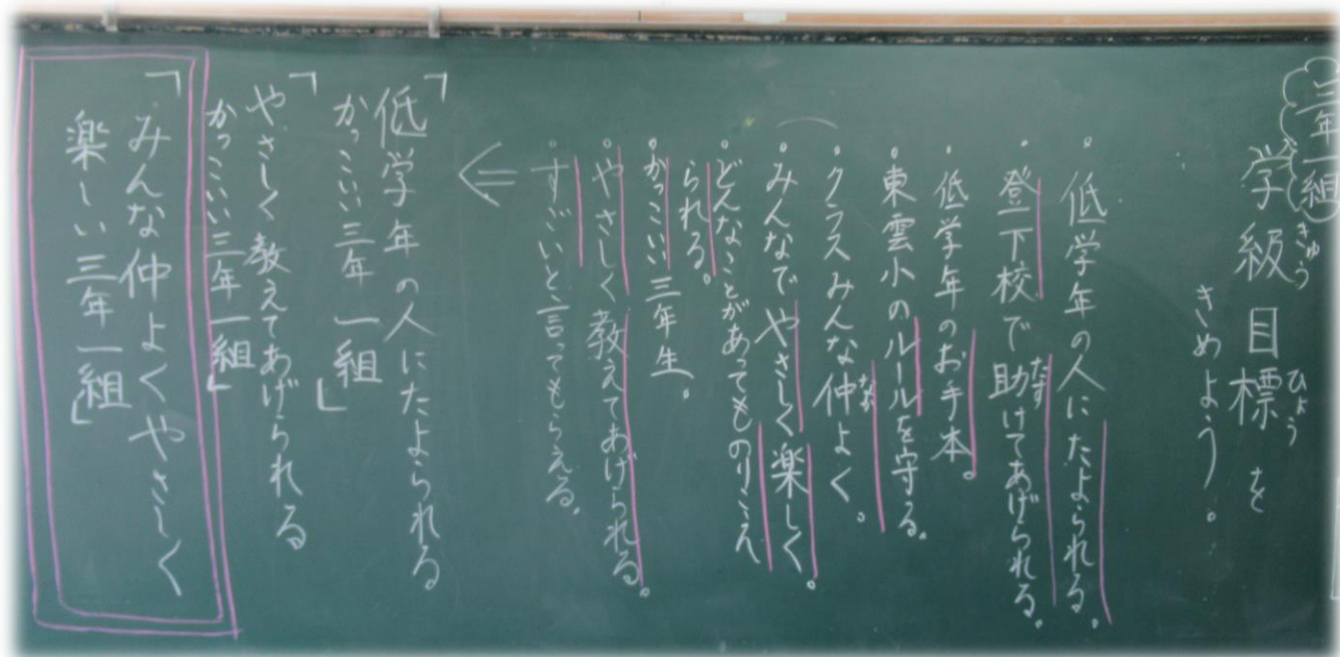 三年一組
学級目標を
きゅう
ひょう
きめよう。
・低学年の人にたよられる。
・登下校で助けてあげられる。
たす
・低学年のお手本。
・東雲小のルールを守る。
・クラスみんな仲よく。
なか
・みんなでやさしく楽しく。
・どんなことがあってものりこえ
られる。
・かっこいい三年生。
・やさしく教えてあげられる。
・すごいと言ってもらえる。
「低学年の人にたよられる
かっこいい三年一組」
「やさしく教えてあげられる
かっこいい三年一組」
「みんな仲よくやさしく
楽しい三年一組」